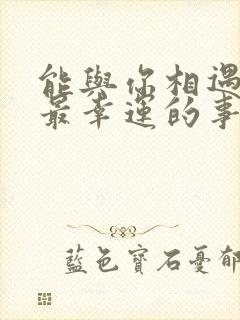 能與你相遇
最幸運的事
藍色寶石憂郁